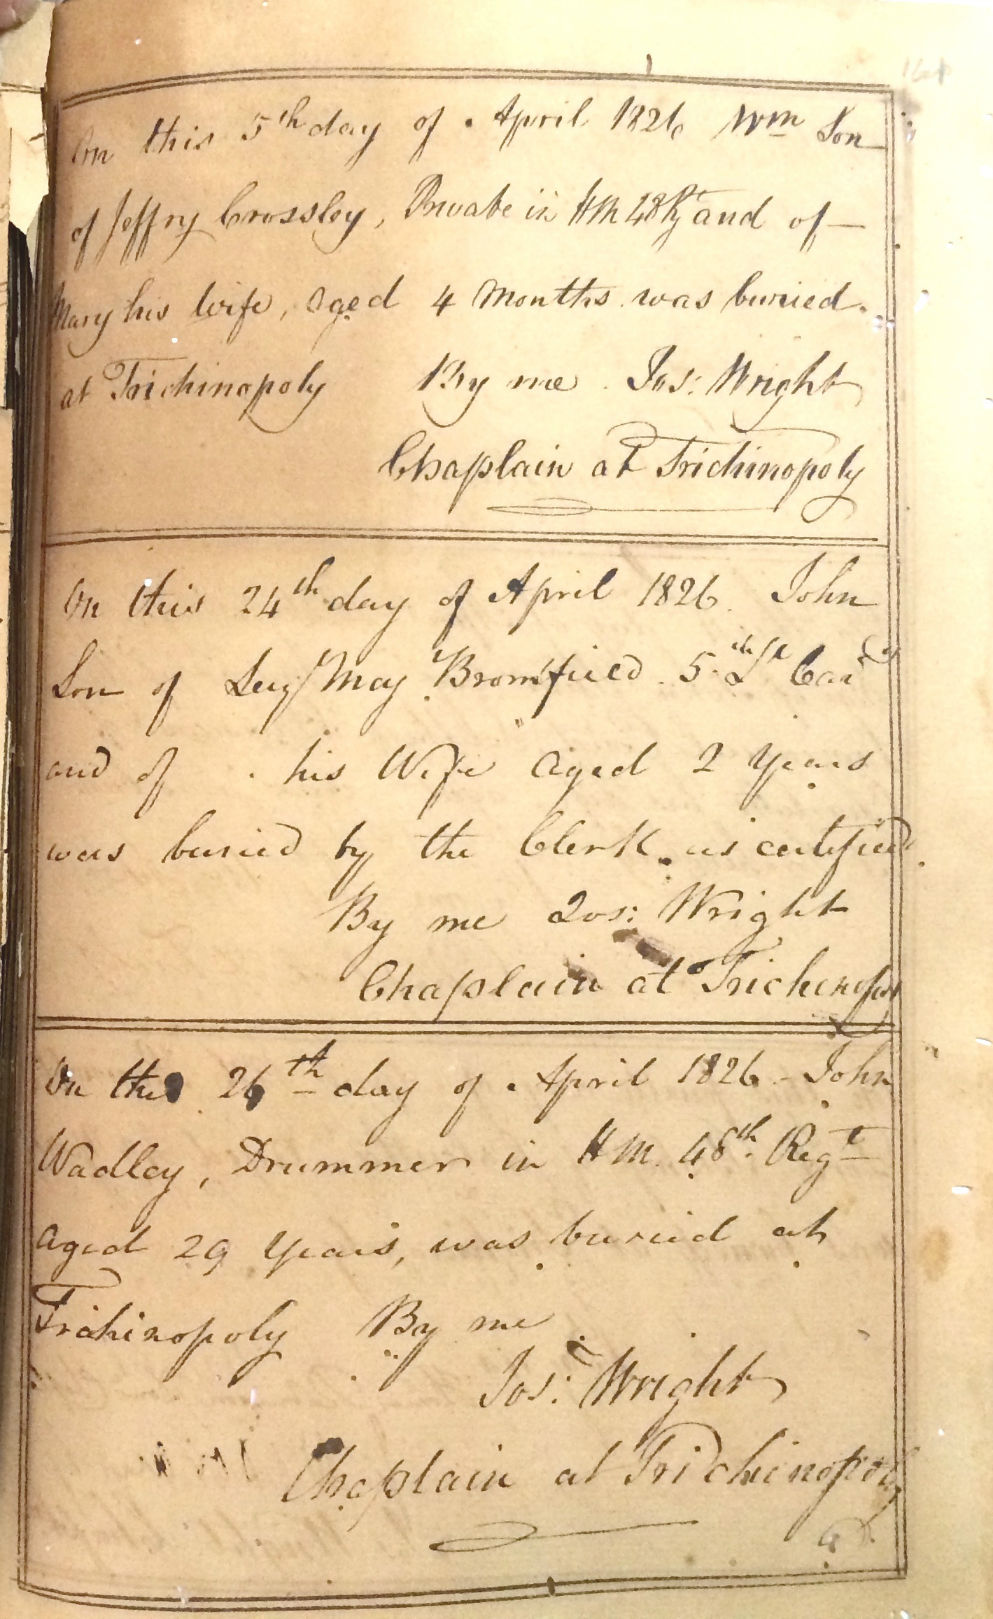 On this 5th day of April 1826 Wm Son
of Jeffry Crossley, Private in HM 48 Rgt and of
Mary his wife, aged 4 Months was buried
at Trichinopoly By me Jos: Wright
Chaplain at Trichinopoly
On this 24th day of April 1826. John
Son of Serj Maj Bromfield 5th Lt Cavy
and of his Wife aged 2 Years
was buried by the Clerk as certified
By me Jos: Wright
Chaplain at Trichinopoly
On the 26th day of April 1826 - John
Wadley, Drummer in H.M. 48th Regt
aged 29 Years, was buried at
Trichinopoly By me
Jos: Wright
Chaplain at Trichinopoly